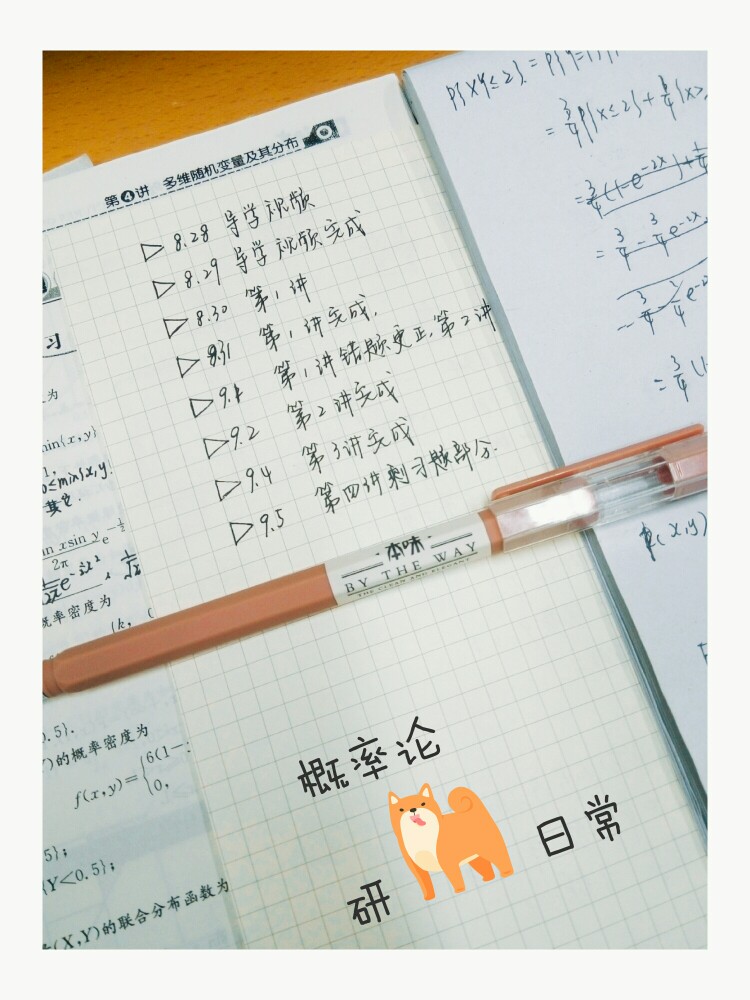 第4讲 多维随机变量及其分布
▷ 8.28 导学视频
▷ 8.29 导学视频完成
▷ 8.30 第1讲
▷ 8.31 第1讲完成.
▷ 9.1 第1讲错题更正.第2讲
▷ 9.2 第2讲完成
▷ 9.4 第3讲完成
▷ 9.5 第四讲剩习题部分.
·本味·
BY THE WAY
THE CLEAN AND ELEGANT
概率论
研 日常
习
为
min(x,y)
1,
0≤min{x,y.
其它.
sin xsin y e
2π
概率密度为
0.5}.
)的概率密度为
f(x,y)={6(1-
0,
5};
{Y<0.5};
(X,Y)的联合分布函数为
P{XY≤2}=P{Y=1
=3/4P{X≤2}+
=3/4(1-e^-2x)+1/4
=3/4-3/4e^-2x
=3/4(1
(x,y)